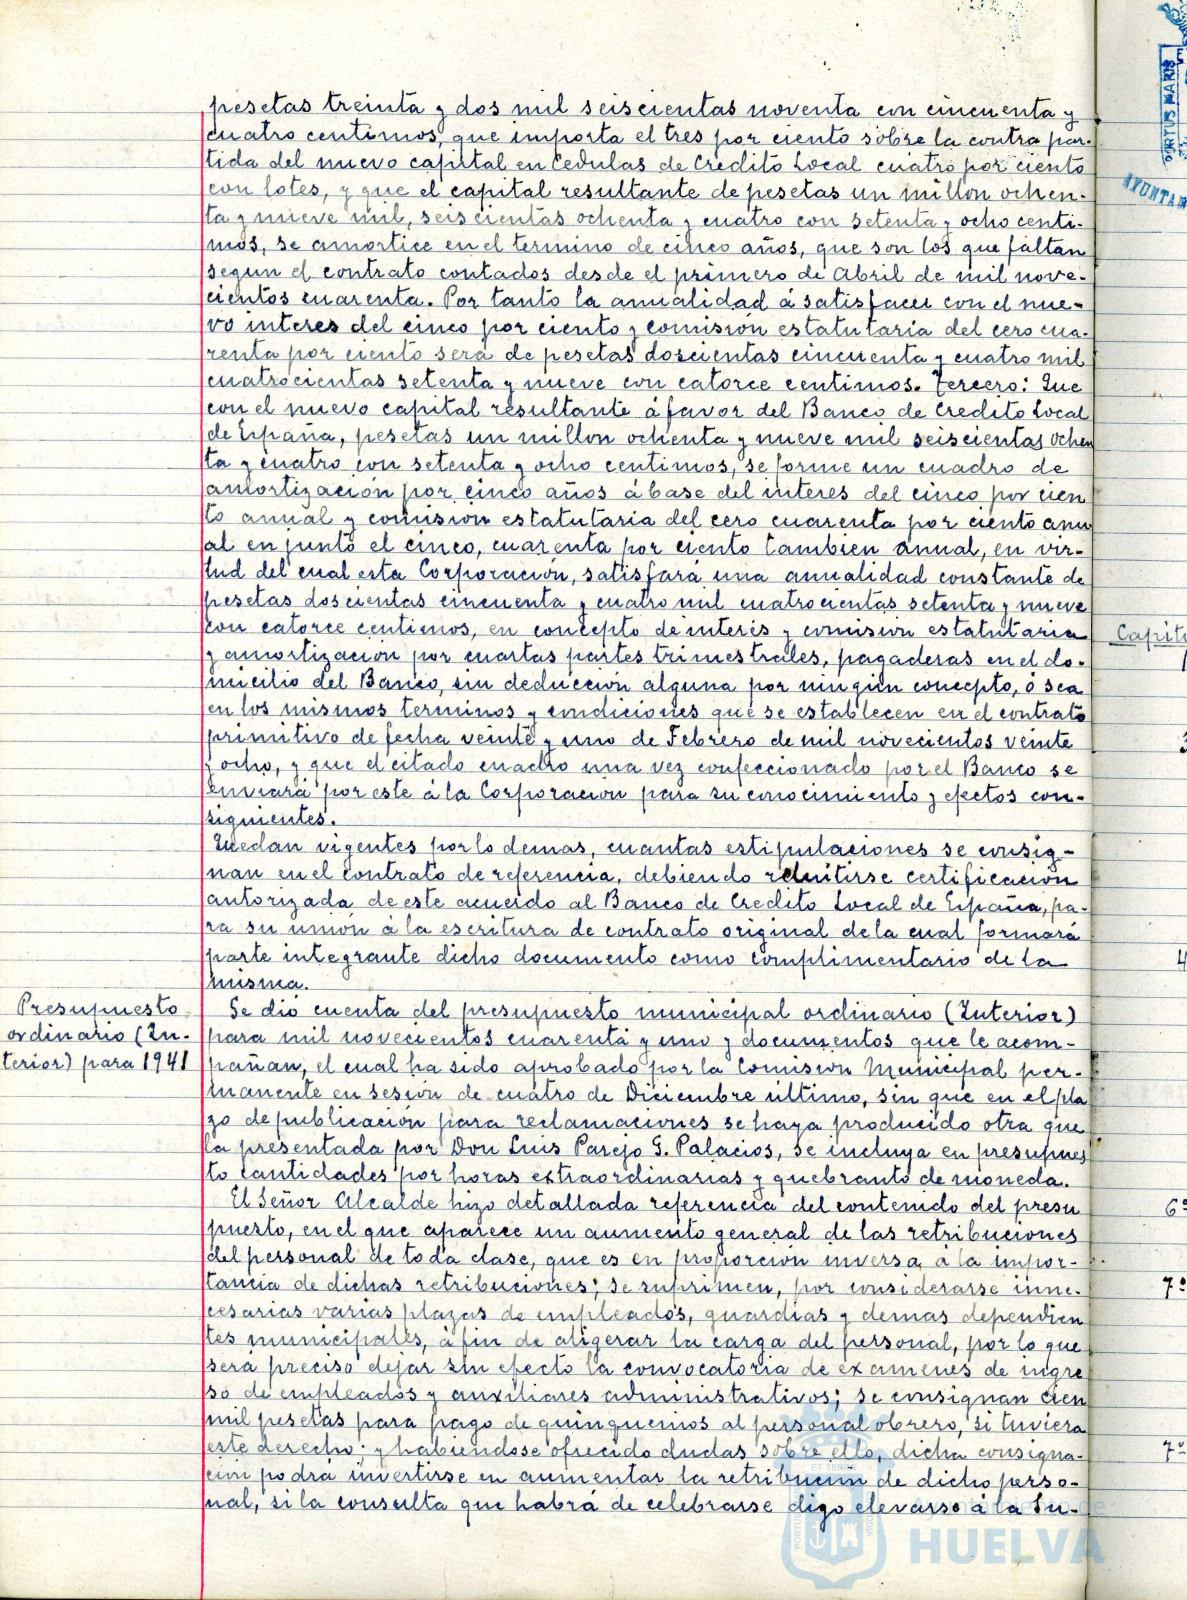 pesetas treinta y dos mil seiscientas noventa con cincuenta y
cuatro centimos, que importa el tres por ciento sobre la contra par-
tida del nuevo capital en Cedulas de Credito Local cuatro por ciento
con lotes, y que el capital resultante de pesetas un millon ochen-
ta y nueve mil, seiscientas ochenta y cuatro con setenta y ocho centi-
mos, se amortice en el termino de cinco años, que son los que faltan
segun el contrato contados desde el primero de Abril de mil nove-
cientos cuarenta. Por tanto la anualidad á satisfacer con el nue-
vo interes del cinco por ciento y comisión estatutaria del cero cua-
renta por ciento será de pesetas doscientas cincuenta y cuatro mil
cuatrocientas setenta y nueve con catorce centimos. Tercero: Que
con el nuevo capital resultante á favor del Banco de Credito Local
de España, pesetas un millon ochenta y nueve mil seiscientas ochen
ta y cuatro con setenta y ocho centimos, se forme un cuadro de
amortización por cinco años á base del interes del cinco por cien
to anual y comisión estatutaria del cero cuarenta por ciento anu
al en junto el cinco, cuarenta por ciento tambien anual, en vir-
tud del cual esta Corporación, satisfará una anualidad constante de
pesetas doscientas cincuenta y cuatro mil cuatrocientas setenta y nueve
con catorce centimos, en concepto de interés y comisión estatutaria
y amortización por cuartas partes trimestrales, pagaderas en el do-
micilio del Banco, sin deducción alguna por ningún concepto, ó sea
en los mismos terminos y condiciones que se establecen en el contrato
primitivo de fecha veinte y uno de Febrero de mil novecientos veinte
y ocho, y que el citado cuadro una vez confeccionado por el Banco se
enviará por este á la Corporación para su conocimiento y efectos con-
siguientes.
Quedan vigentes por lo demas, cuantas estipulaciones se consig-
nan en el contrato de referencia, debiendo remitirse certificación
autorizada de este acuerdo al Banco de Credito Local de España, pa-
ra su unión á la escritura de contrato original de la cual formará
parte integrante dicho documento como complimentario de la
misma.
Presupuesto
ordinario (In-
terior) para 1941
Se dió cuenta del presupuesto municipal ordinario (Interior)
para mil novecientos cuarenta y uno y documentos que le acom-
pañan, el cual ha sido aprobado por la Comisión Municipal per-
manente en sesión de cuatro de Diciembre último, sin que en el pla
zo de publicación para reclamaciones se haya producido otra que
la presentada por Don Luis Parejo G. Palacios, se incluya en presupues
to cantidades por horas extraordinarias y quebranto de moneda.
El Señor Alcalde hizo detallada referencia del contenido del presu
puesto, en el que aparece un aumento general de las retribuciones
del personal de toda clase, que es en proporción inversa á la impor-
tancia de dichas retribuciones; se suprimen, por considerarse inne-
cesarias varias plazas de empleados, guardias y demas dependien
tes municipales, á fin de aligerar la carga del personal, por lo que
será preciso dejar sin efecto la convocatoria de examenes de ingre
so de empleados y auxiliares administrativos; se consignan cien
mil pesetas para pago de quinquenios al personal obrero, si tuviera
este derecho; y habiendose ofrecido dudas sobre ello, dicha consigna-
ción podrá invertirse en aumentar la retribución de dicho perso-
nal, si la consulta que habrá de celebrarse digo elevarse á la Su-
PORTUS MARIS
AYUNTAM
Capitu
1
3
4
6º
7º
7º
HUELVA